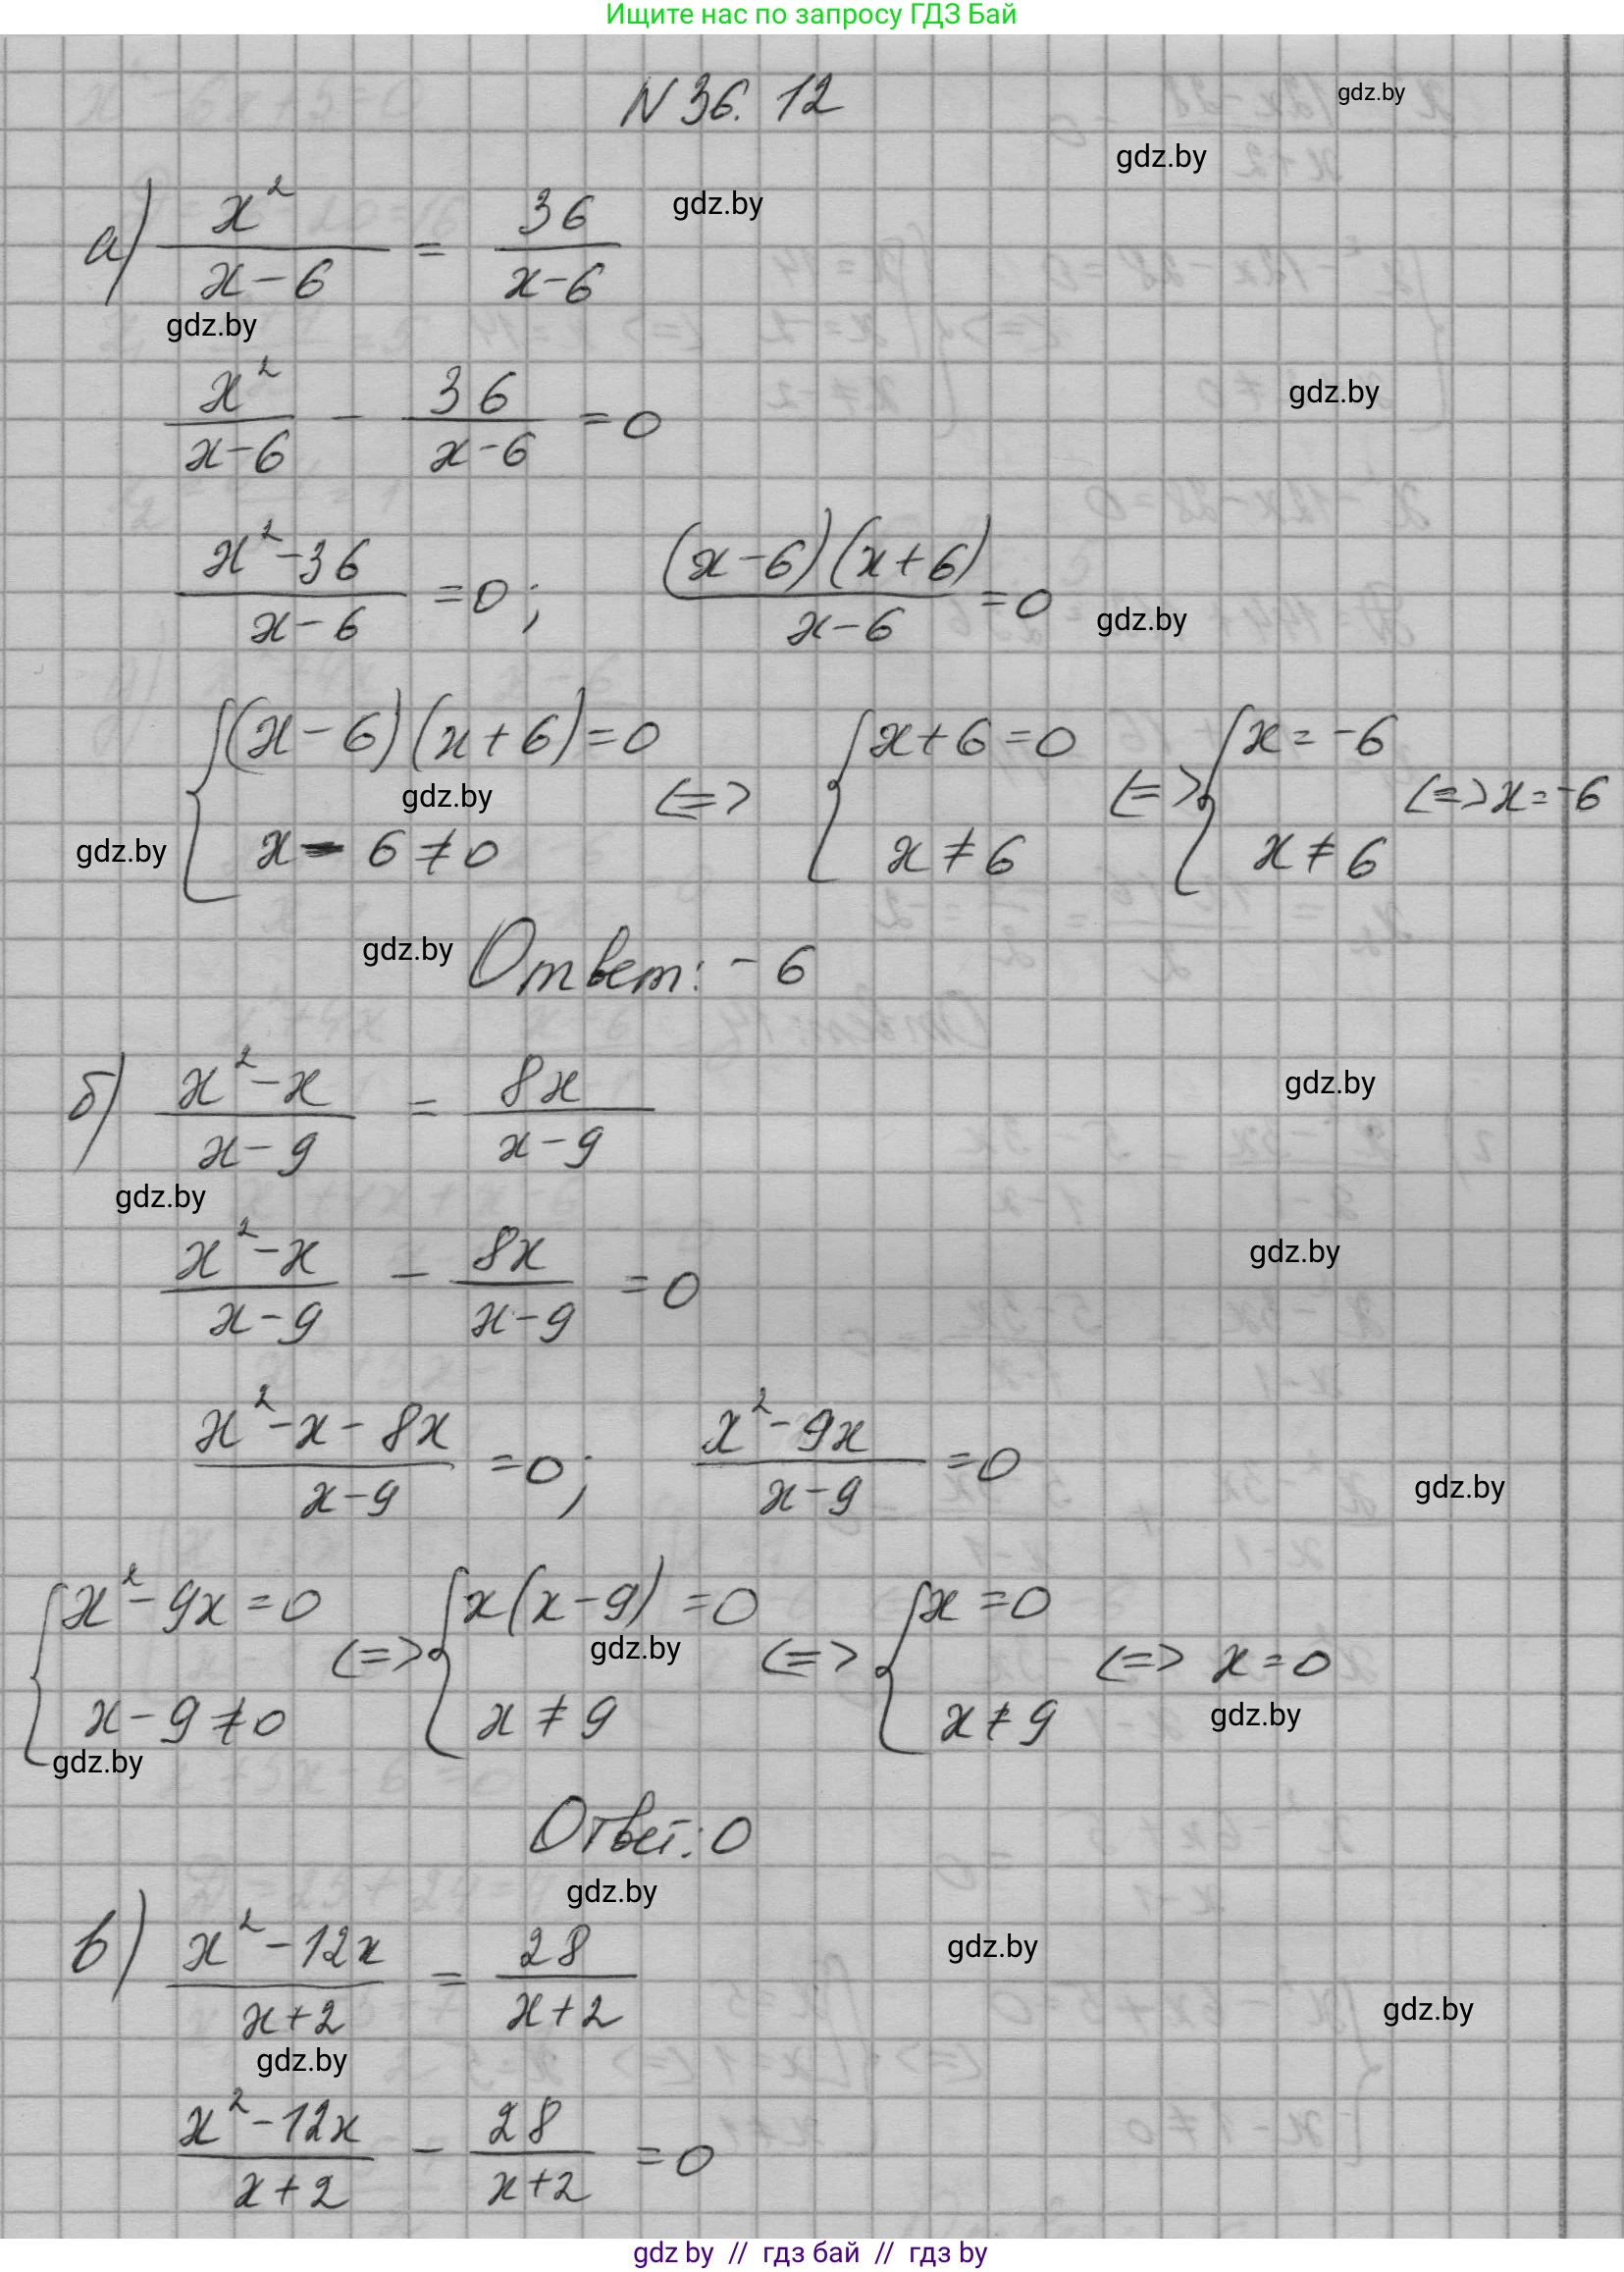 Ищите нас по запросу ГДЗ Бай
N 36. 12
gdz.by
gdz.by
а) x²/(x-6) = 36/(x-6)
gdz.by
gdz.by
x²/(x-6) - 36/(x-6) = 0
gdz.by
(x²-36)/(x-6) = 0; (x-6)(x+6)/(x-6) = 0
gdz.by
{(x-6)(x+6)=0 <=> {x+6=0 <=> {x=-6 <=> x=-6
gdz.by
x-6≠0 x≠6 x≠6
gdz.by
gdz.by
Ответ: -6
б) (x²-x)/(x-9) = 8x/(x-9)
gdz.by
gdz.by
(x²-x)/(x-9) - 8x/(x-9) = 0
gdz.by
(x²-x-8x)/(x-9) = 0; (x²-9x)/(x-9) = 0
gdz.by
{x²-9x=0 <=> {x(x-9)=0 <=> {x=0 <=> x=0
gdz.by
x-9≠0 x≠9 x≠9
gdz.by
gdz.by
Ответ: 0
gdz.by
в) (x²-12x)/(x+2) = 28/(x+2)
gdz.by
gdz.by
gdz.by
(x²-12x)/(x+2) - 28/(x+2) = 0
gdz by // гдз бай // гдз by